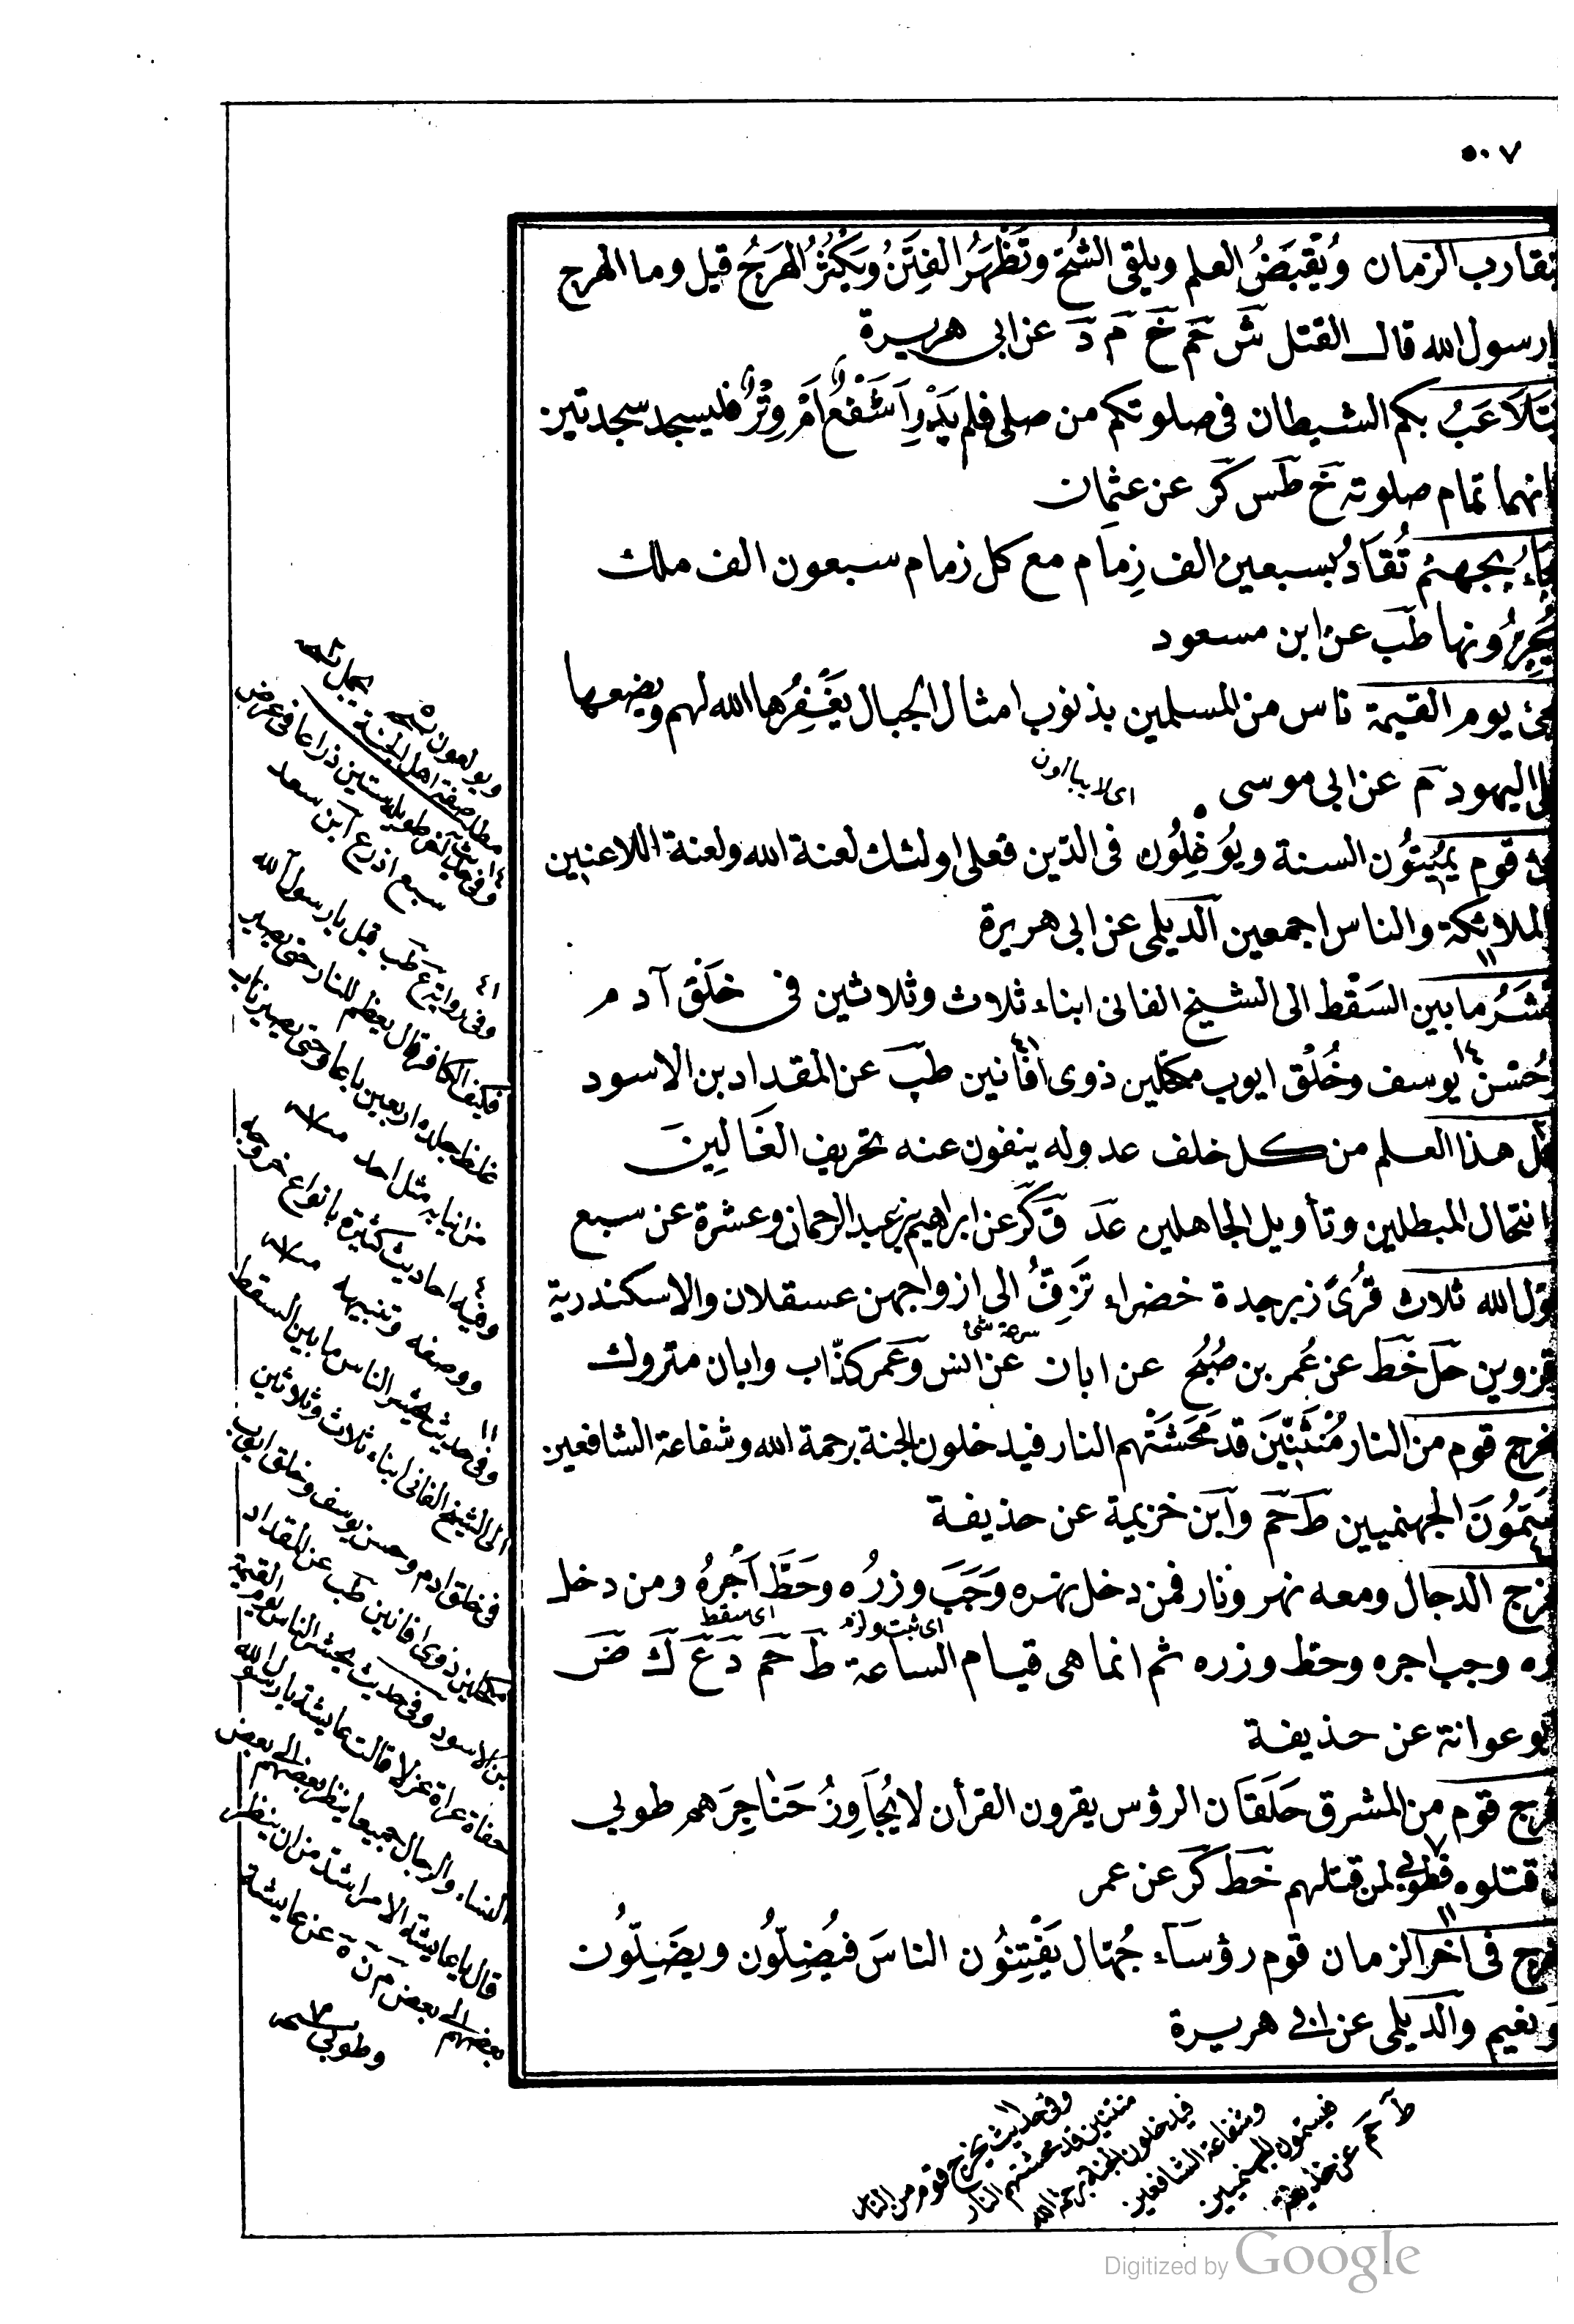 ٥٠٧
يتقارب الزمان وَيُقْبَضُ العلم ويلقى الشُّحّ وتَظْهَرُ الفِتَنُ ويَكْثُرُ الهَرَجُ قيل وما الهرج
يا رسول الله قال القتل شَ حَم خَ مَ دَ عن ابى هريرة
يَتَلَاعَبُ بكم الشيطان فى صلوتكم من صلى فلم يَدْرِ اَشَفْعٌ اَمْ وِتْرٌ فليسجد سجدتين
فانهما تمام صلوته خَ طَس كَر عن عثمان
يُجَاءُ بجهنم تُقَادُ بسبعين الف زِمَام مع كل زمام سبعون الف ملك
يَجُرُّونها طَب عن ابن مسعود
يجئ يوم القيمة ناس من المسلمين بذنوب امثال الجبال يَغْفِرُها الله لهم ويضعها
على اليهود مَ عن ابى موسى
اى لا يبالون
قوم يُمِيتُون السنة ويُوغِلُون فى الدّين فعلى اولئك لعنة الله ولعنة اللاعنين
والملائكة والناس اجمعين الدَيلمى عن ابى هريرة
يُحْشَرُ ما بين السَقْط الى الشيخ الفانى ابناء ثلاث وثلاثين فى خَلْق آدم
وحُسْن يوسف وخُلْق ايوب مكحّلين ذوى افَانين طَب عن المقداد بن الاسود
يحمل هذا العلم من كل خلف عدوله ينفون عنه تحريف الغَالِينَ
وانتحال المبطلين وتأويل الجاهلين عَد قَ كَر عن ابراهيم بن عبد الرحمان وعشرة عن سبع
يحوّل الله ثلاث قُرًى زبرجدة خضراء تُزَفُّ الى ازواجهن عسقلان والاسكندرية
وقزوين حَل خَط عن عُمر بن صُبْح عن ابان عن انس وعَمر كذّاب وابان متروك
يخرج قوم من النار مُنْتَنِينَ قد مَحَشَتْهم النار فيدخلون الجنة برحمة الله وشفاعة الشافعين
يُسَمَّوْنَ الجهنميين طَ حَم وآبن خزيمة عن حذيفة
يخرج الدجال ومعه نهر ونار فمن دخل نهره وَجَبَ وزرُه وحَطَّ اَجْرُهُ ومن دخل
اى ثبت ولزم
اى سقط
ناره وجب اجره وحط وزره ثم انما هى قيام الساعة طَ حَم دَ عَ كَ ضَ
وابو عوانة عن حذيفة
يخرج قوم من المشرق حَلَقَان الرؤس يقرون القرأن لا يُجَاوِزُ حَنَاجِرَهم طوبى
لمن قتلوه فطوبى لمن قتلهم خَط كَر عن عمر
يخرج فى اخر الزمان قوم رؤسَاء جُهّال يَفْتِنُون الناسَ فيُضِلُّون ويَضِلُّون
ابو نعيم والدَيلمى عن ابى هريرة
مطلب صفة اهل الجنة
سبع اذرع آبن سعد
وفى رواية عَ طَب قيل يا رسول الله
فكيف الكافر قال يعظم للنار حتى يصير
غلظ جلده اربعين باعا وحتى يصير ناب
من انيابه مثل احد
وفيه احاديث كثيرة بانواع خروجه
ووصفه وتنبيهه
وفى حديث يحشر الناس ما بين السقط
الى الشيخ الفانى ابناء ثلاث وثلاثين
فى خلق ادم وحسن يوسف وخلق ايوب
مكحلين ذوى افانين طَب عن المقداد
بن الاسود وفى حديث يحشر الناس يوم القيمة
حفاة عراة غرلا قالت عايشة يا رسول الله
النساء والرجال جميعا ينظر بعضهم الى بعض
قال يا عايشة الامر اشد من ان ينظر
بعضهم الى بعض مَ نَ هَ عن عايشة
وطوبى
وفى حديث يخرج قوم من النار
منتنين قد محشتهم النار
فيدخلون الجنة برحمة الله
وشفاعة الشافعين
فيسمون الجهنميين
طَ حَم عن حذيفة
Digitized by Google